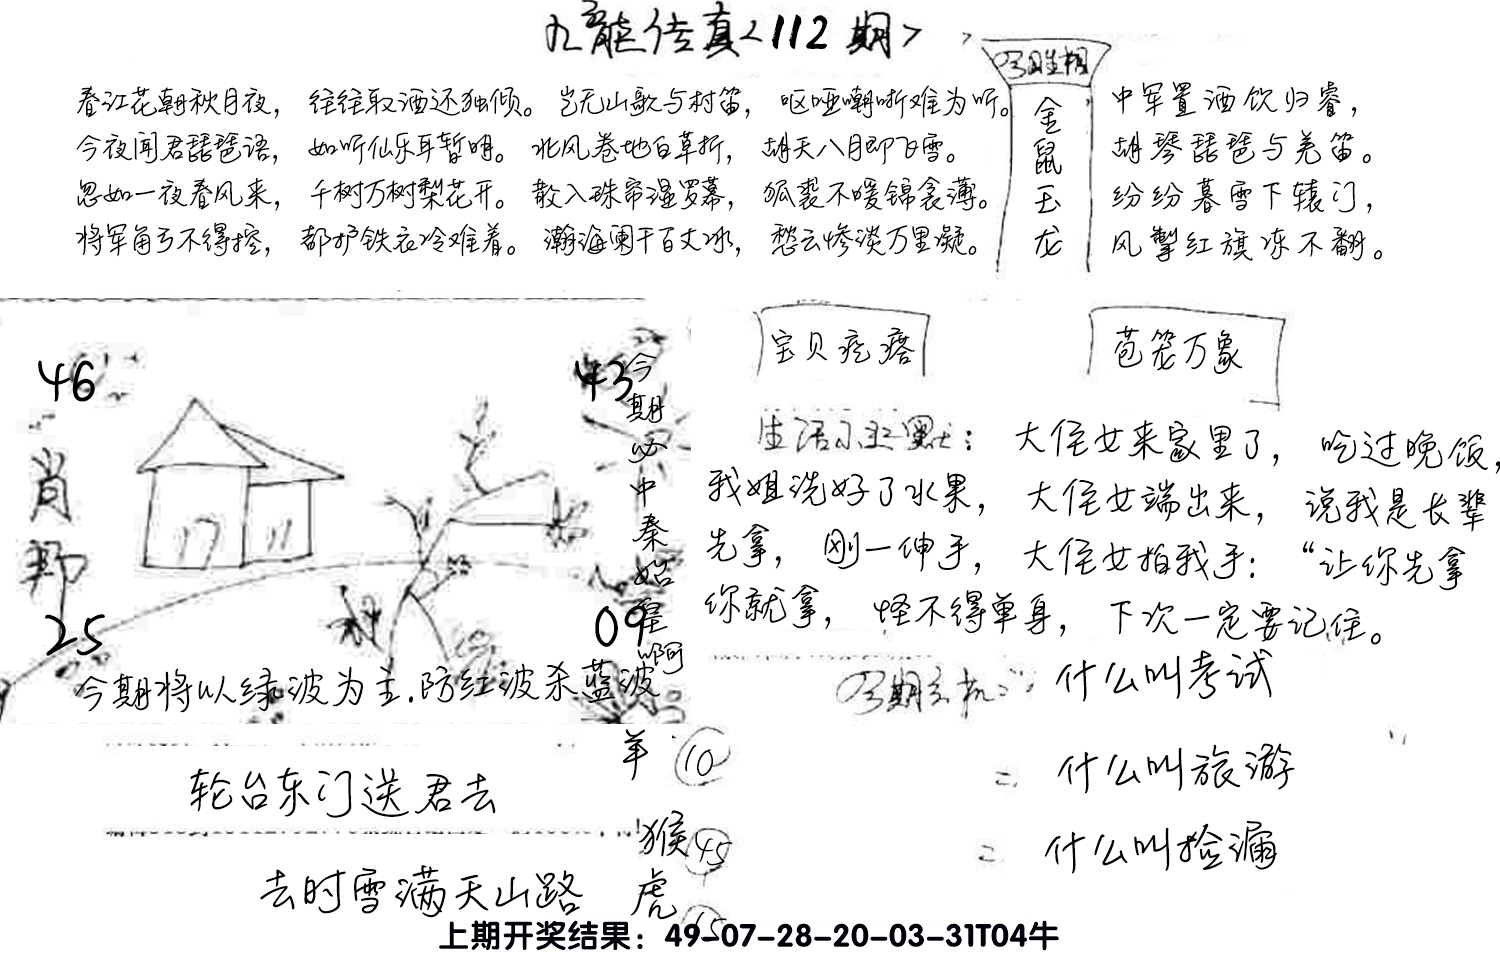 九龍传真<112 期>
春江花朝秋月夜，往往取酒还独倾。岂无山歌与村笛，呕哑嘲哳难为听。
今夜闻君琵琶语，如听仙乐耳暂明。北风卷地白草折，胡天八月即飞雪。
忽如一夜春风来，千树万树梨花开。散入珠帘湿罗幕，狐裘不暖锦衾薄。
将军角弓不得控，都护铁衣冷难着。瀚海阑干百丈冰，愁云惨淡万里凝。
金鼠玉龙
中军置酒饮归客，
胡琴琵琶与羌笛。
纷纷暮雪下辕门，
风掣红旗冻不翻。
46
43
肖
25
09
今期必中秦始皇啊
今期将以绿波为主.防红波杀蓝波
宝贝疙瘩
苞笼万象
生活小幽默：大侄女来家里了，吃过晚饭，
我姐洗好了水果，大侄女端出来，说我是长辈
先拿，刚一伸手，大侄女拍我手：“让你先拿
你就拿，怪不得单身，下次一定要记住。
什么叫考试
什么叫旅游
什么叫捡漏
轮台东门送君去
去时雪满天山路
羊 10
猴 45
虎 15
上期开奖结果：49-07-28-20-03-31T04牛